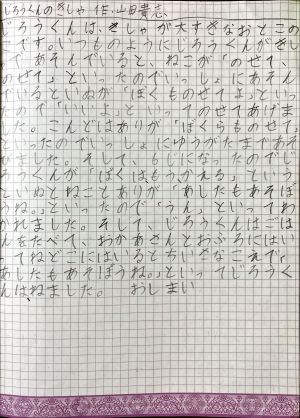 じろうくんのきしゃ 作、山田貴志
じろうくんは、きしゃが大すきなおとこの
です。いつものようにじろうくんがきし
で あそんでいると、ねこが「のせて、
のせて」といったのでいっしょにあそん
でいるといぬが「ぼくものせてよ」といっ
ので「いいよ」といってのせてあげま
した。こんどはありが「ぼくらものせて」
といったのでいっしょにゆうがたまであそ
びました。そして、もじになったのでじ
ろうくんが「ぼくはもうかえる」という
といぬとねことありが「あしたもあそぼ
うね。」といったので「うん」といってわ
かれました。そして、じろうくんはごは
んをたべて、おかあさんとおふろにはい
ってねどこにはいるとちいさなこえで、
あしたもあそぼうね。」といってじろうく
んはねました。 おしまい